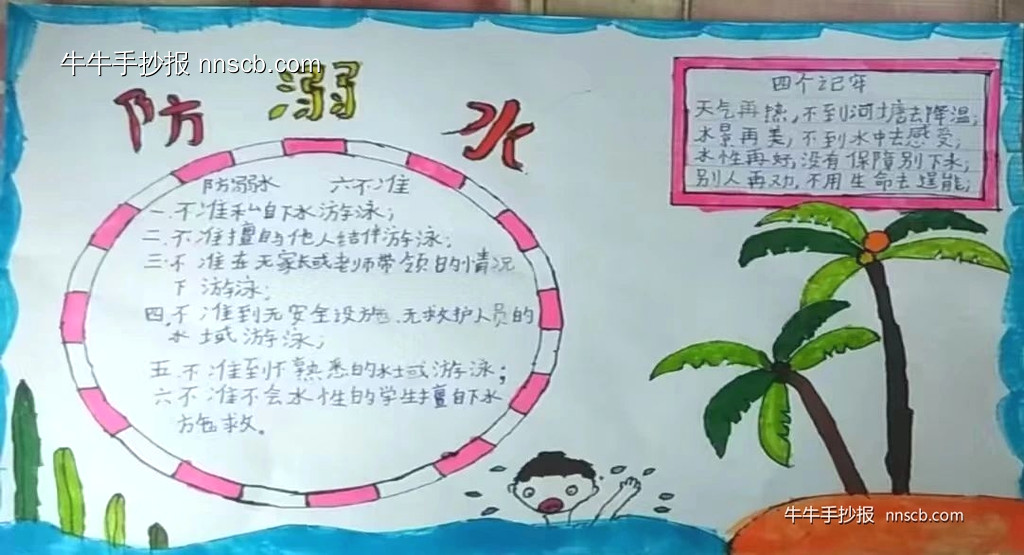 牛牛手抄报 nnscb.com
防溺水
四个记牢
天气再热,不到河塘去降温;
水景再美,不到水中去感受;
水性再好,没有保障别下水;
别人再劝,不用生命去逞能;
防溺水 六不准
一.不准私自下水游泳;
二.不准擅自与他人结伴游泳;
三.不准在无家长或老师带领的情况
下游泳;
四.不准到无安全设施、无救护人员的
水域游泳;
五.不准到不熟悉的水域游泳;
六不准不会水性的学生擅自下水
施救。
牛牛手抄报 nnscb.com